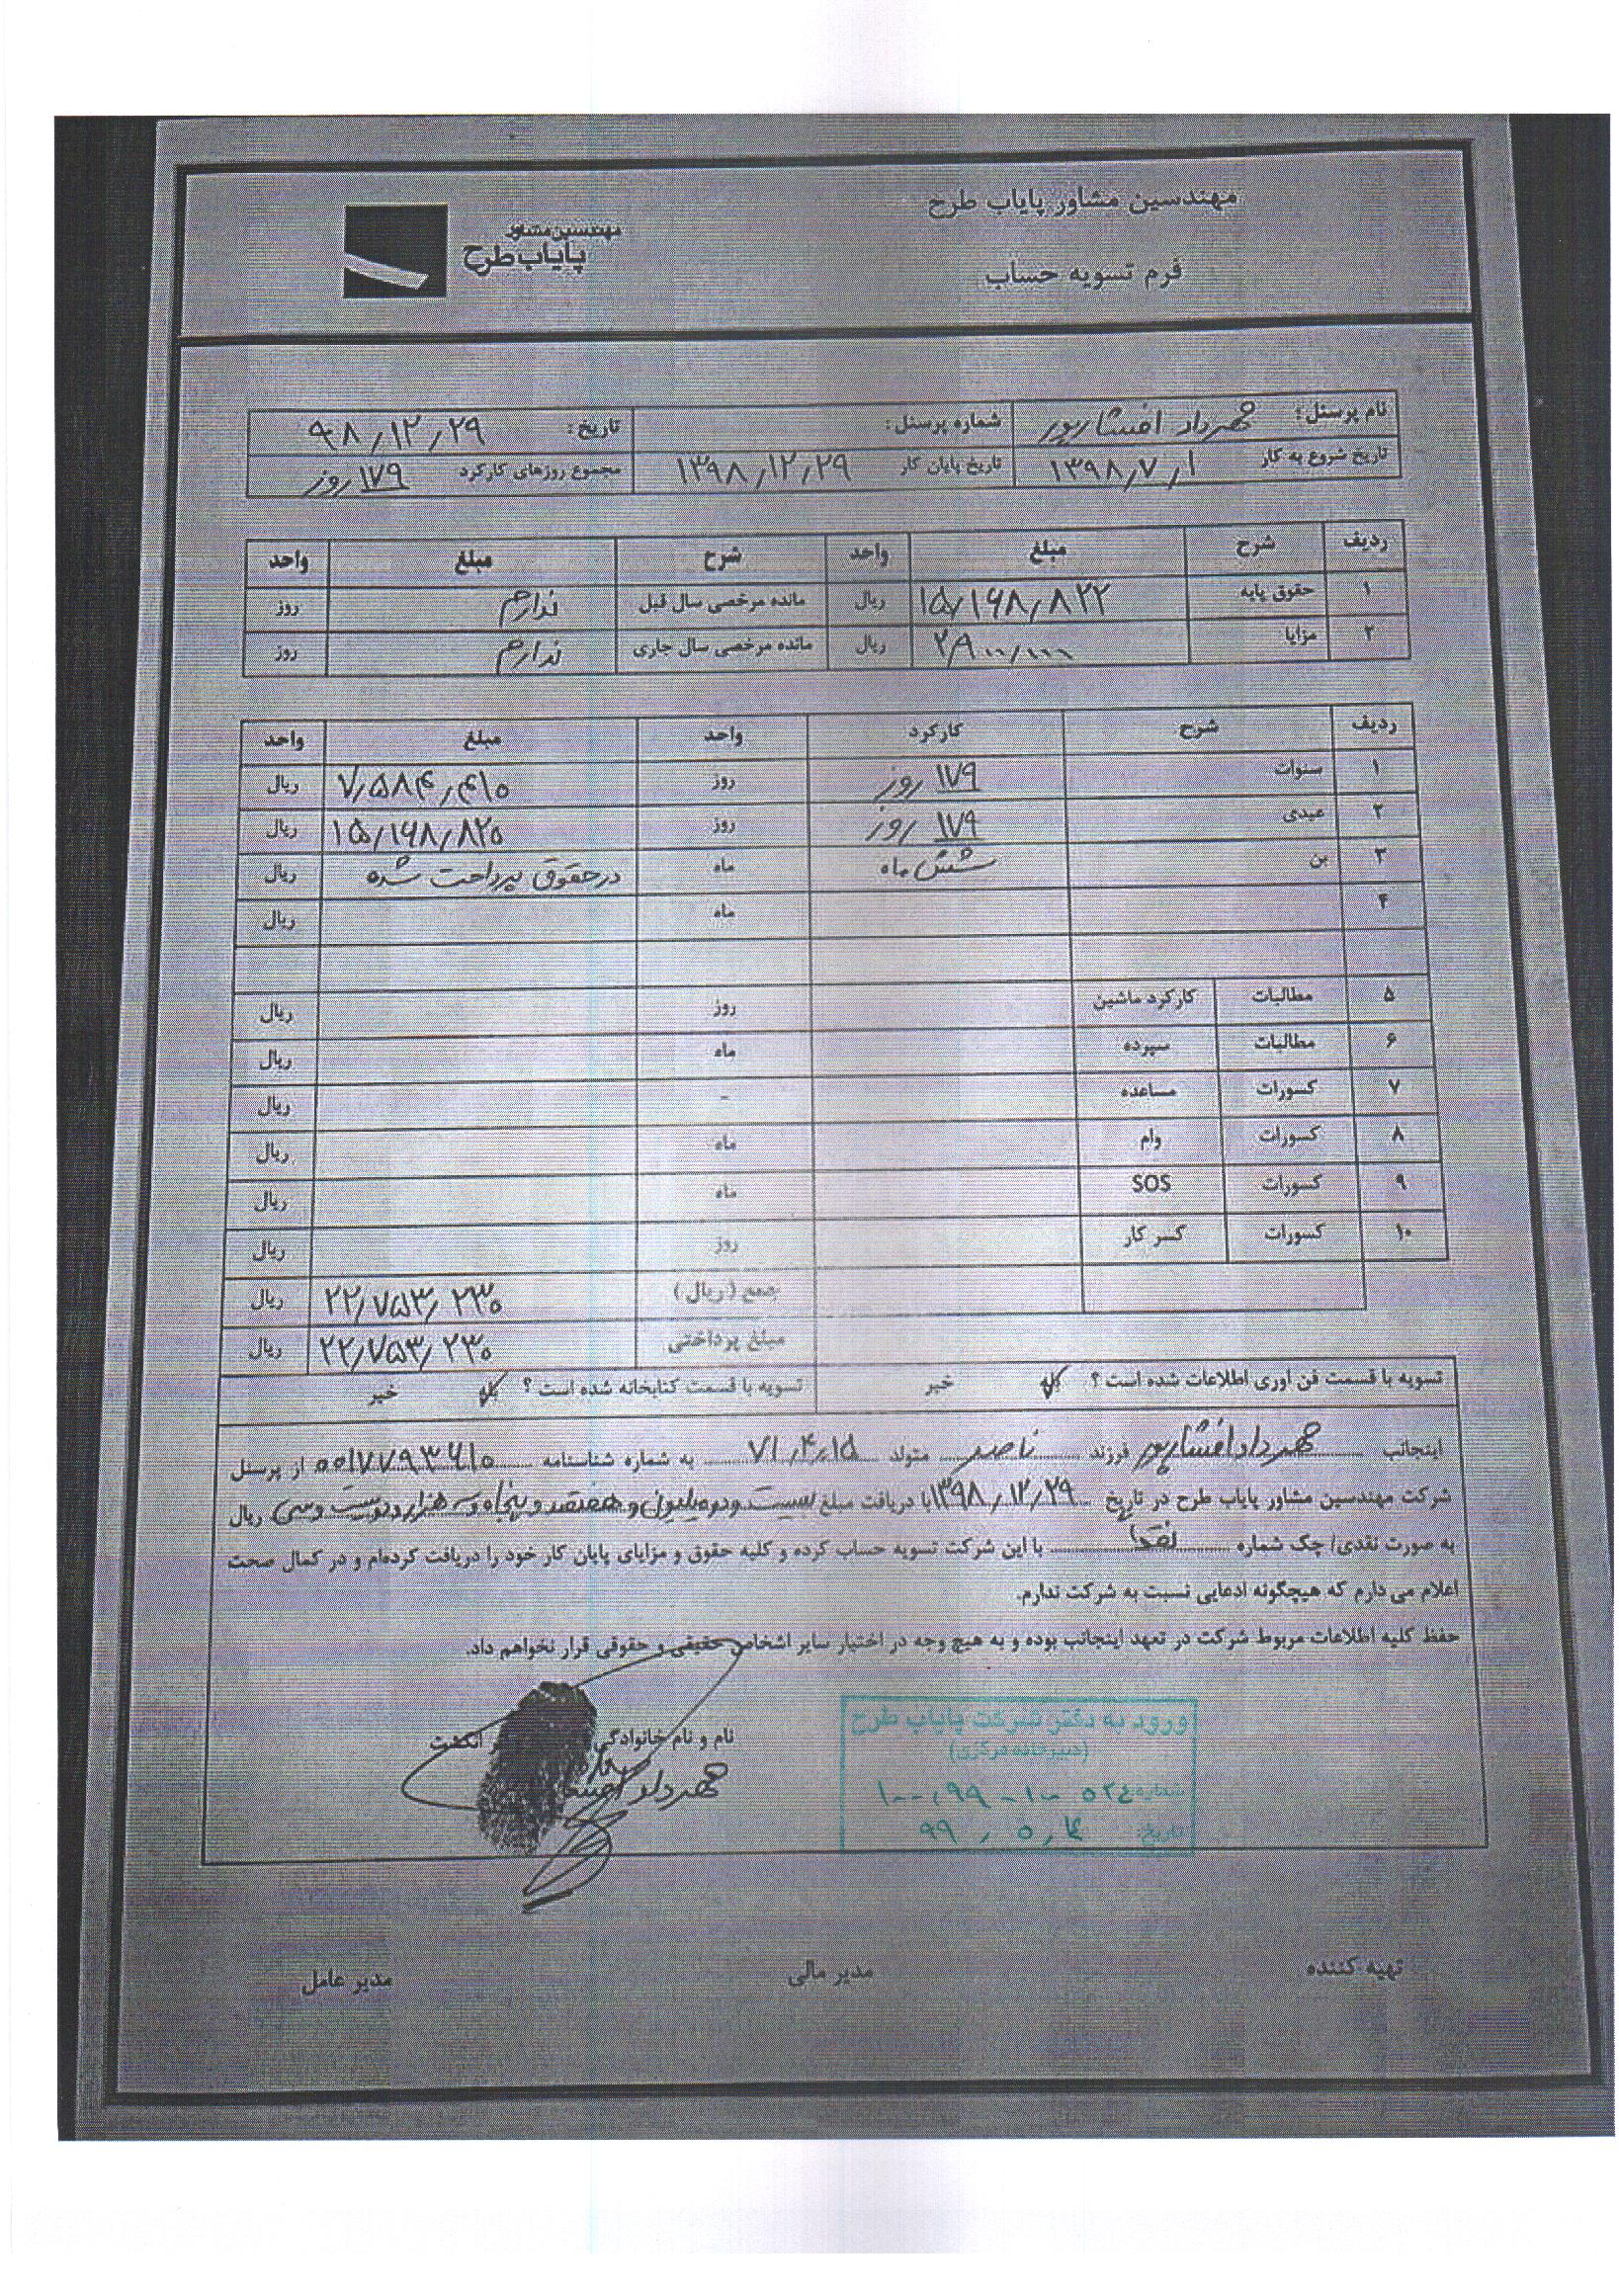 مهندسین مشاور پایاب طرح
مهندسین مشاور
پایاب طرح
فرم تسویه حساب
نام پرسنل: مهرداد افشارپور شماره پرسنل: تاریخ: ۹۸/۱۲/۲۹
تاریخ شروع به کار ۱۳۹۸/۷/۱ تاریخ پایان کار ۱۳۹۸/۱۲/۲۹ مجموع روزهای کارکرد ۱۷۹ روز
ردیف شرح مبلغ واحد شرح مبلغ واحد
۱ حقوق پایه ۱۵/۱۶۸/۸۲۲ ریال مانده مرخصی سال قبل ندارم روز
۲ مزایا ریال مانده مرخصی سال جاری ندارم روز
ردیف شرح کارکرد واحد مبلغ واحد
۱ سنوات ۱۷۹ روز روز ۷/۵۸۴/۴۱۰ ریال
۲ عیدی ۱۷۹ روز روز ۱۵/۱۶۸/۸۲۰ ریال
۳ بن شش ماه ماه در حقوق پرداخت شده ریال
۴ ماه ریال
۵ مطالبات کارکرد ماشین روز ریال
۶ مطالبات سپرده ماه ریال
۷ کسورات مساعده - ریال
۸ کسورات وام ماه ریال
۹ کسورات SOS ماه ریال
۱۰ کسورات کسر کار روز ریال
جمع (ریال) ۲۲/۷۵۳/۲۳۰ ریال
مبلغ پرداختی ۲۲/۷۵۳/۲۳۰ ریال
تسویه با قسمت فن اوری اطلاعات شده است ؟ بله خیر تسویه با قسمت کتابخانه شده است ؟ بله خیر
اینجانب مهرداد افشارپور فرزند ناصر متولد ۷۱/۴/۱۵ به شماره شناسنامه ۰۰۱۷۷۹۳۶۱۰ از پرسنل
شرکت مهندسین مشاور پایاب طرح در تاریخ ۱۳۹۸/۱۲/۲۹ با دریافت مبلغ بیست و دو میلیون و هفتصد و پنجاه و سه هزار و دویست و سی ریال
به صورت نقدی/ چک شماره نقدا با این شرکت تسویه حساب کرده و کلیه حقوق و مزایای پایان کار خود را دریافت کرده‌ام و در کمال صحت
اعلام می دارم که هیچگونه ادعایی نسبت به شرکت ندارم.
حفظ کلیه اطلاعات مربوط شرکت در تعهد اینجانب بوده و به هیچ وجه در اختیار سایر اشخاص حقیقی و حقوقی قرار نخواهم داد.
نام و نام خانوادگی انگشت
مهرداد
ورود به دفتر شرکت پایاب طرح
(دبیرخانه مرکزی)
شماره: ۱۰۰/۹۹-۱۰-۵۲۴
تاریخ: ۹۹/۵/۴
تهیه کننده مدیر مالی مدیر عامل